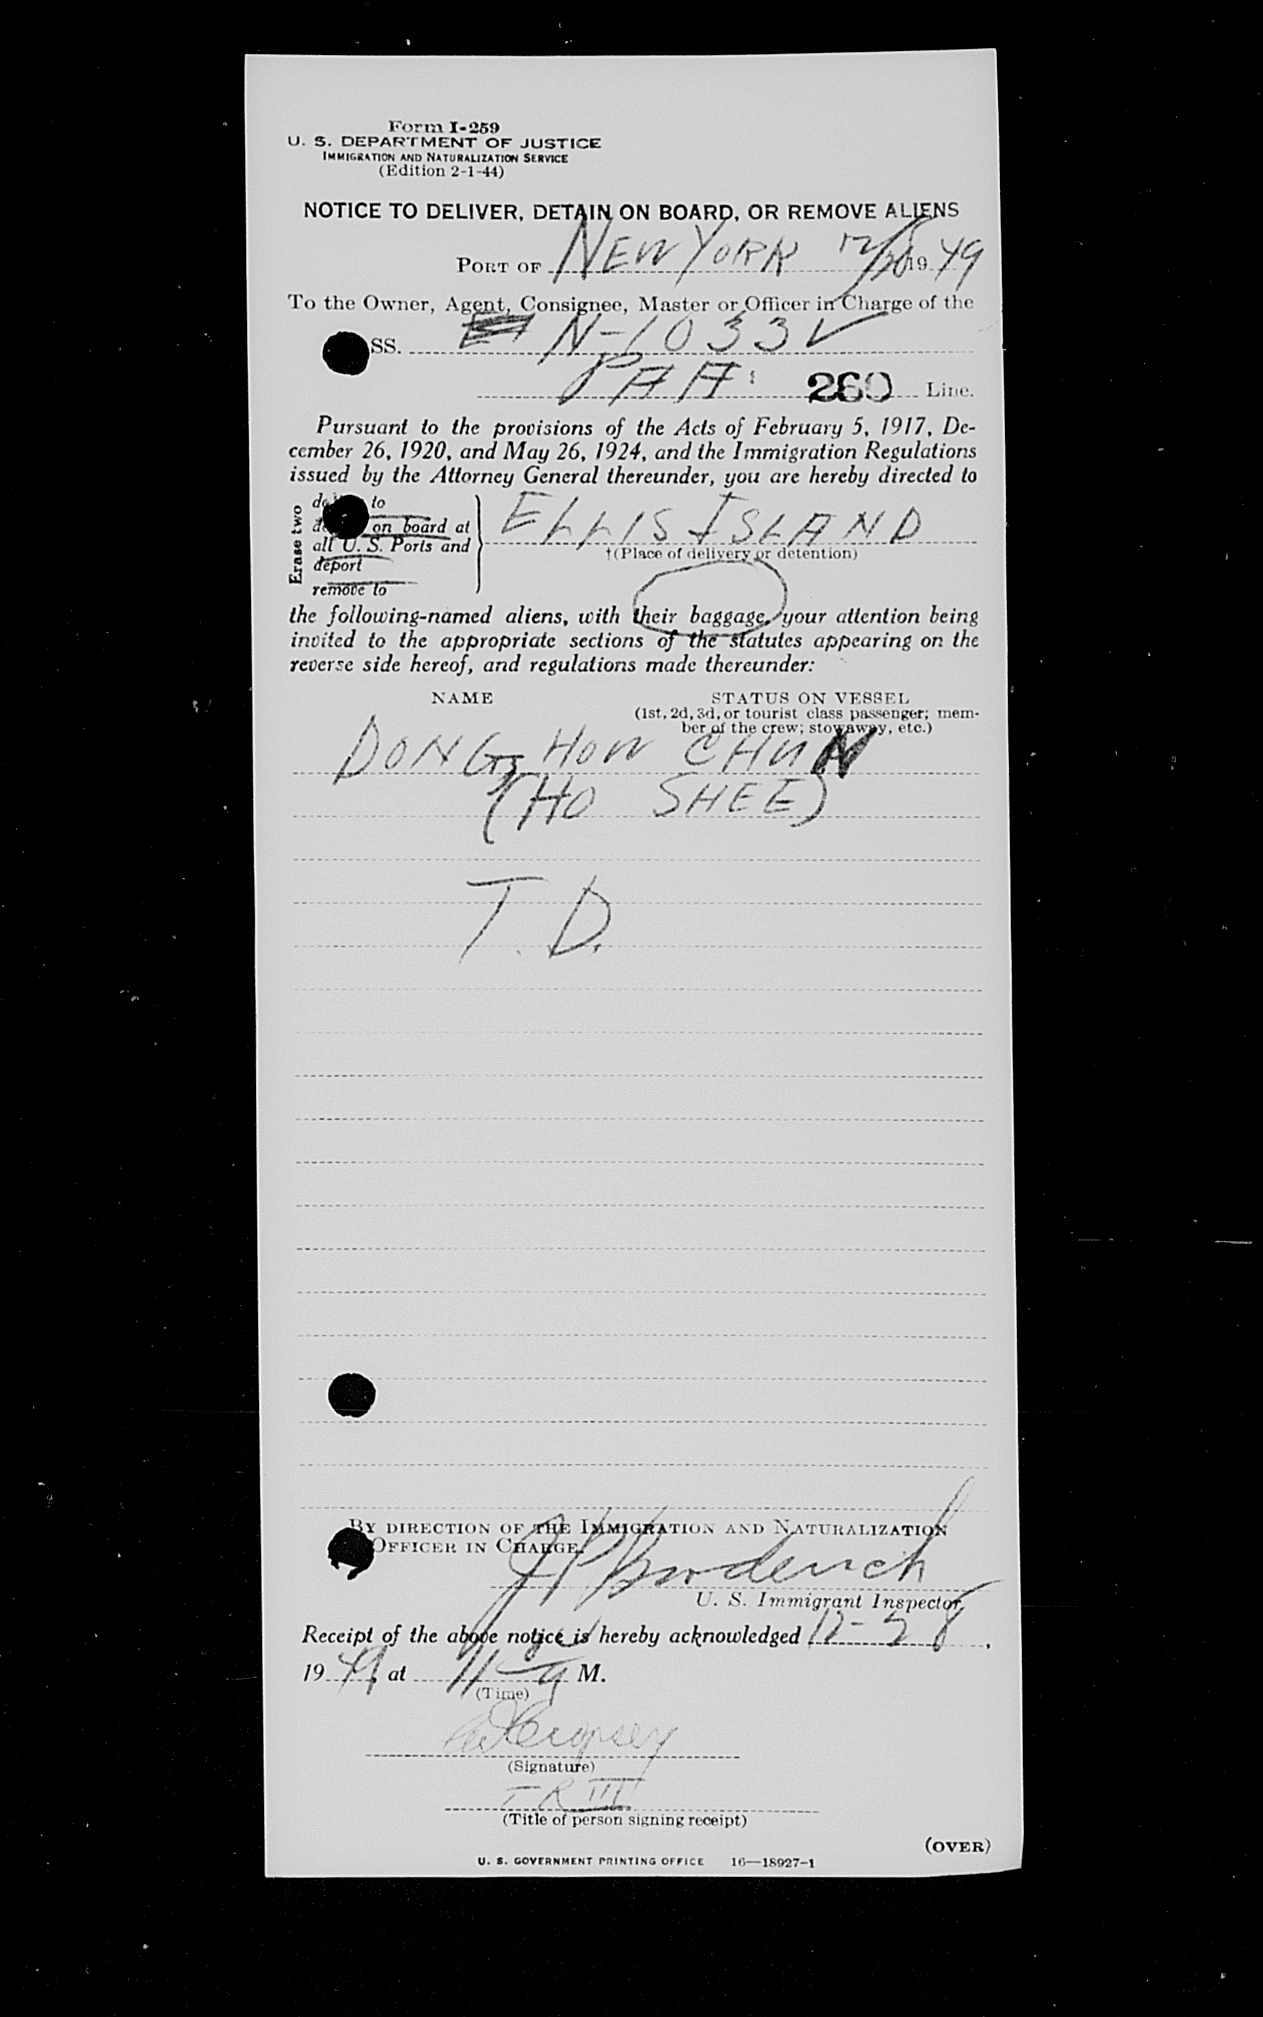 Form I-259
U. S. DEPARTMENT OF JUSTICE
IMMIGRATION AND NATURALIZATION SERVICE
(Edition 2-1-44)
NOTICE TO DELIVER, DETAIN ON BOARD, OR REMOVE ALIENS
PORT OF NEW YORK 12/28 1949
To the Owner, Agent, Consignee, Master or Officer in Charge of the
SS. N-1033V
PAA: 260 Line.
Pursuant to the provisions of the Acts of February 5, 1917, De-
cember 26, 1920, and May 26, 1924, and the Immigration Regulations
issued by the Attorney General thereunder, you are hereby directed to
Erase two
to
on board at ELLIS ISLAND
all U. S. Ports and
†(Place of delivery or detention)
deport
remove to
the following-named aliens, with their baggage, your attention being
invited to the appropriate sections of the statutes appearing on the
reverse side hereof, and regulations made thereunder:
NAME STATUS ON VESSEL
(1st, 2d, 3d, or tourist class passenger; mem-
ber of the crew; stowaway, etc.)
DONG, HOW CHUN
(HO SHEE)
T. D.
BY DIRECTION OF THE IMMIGRATION AND NATURALIZATION
OFFICER IN CHARGE.
U. S. Immigrant Inspector.
Receipt of the above notice is hereby acknowledged 12-28,
1949, at 11 M.
(Time)
(Signature)
I R III
(Title of person signing receipt)
(OVER)
U. S. GOVERNMENT PRINTING OFFICE 16—18927-1